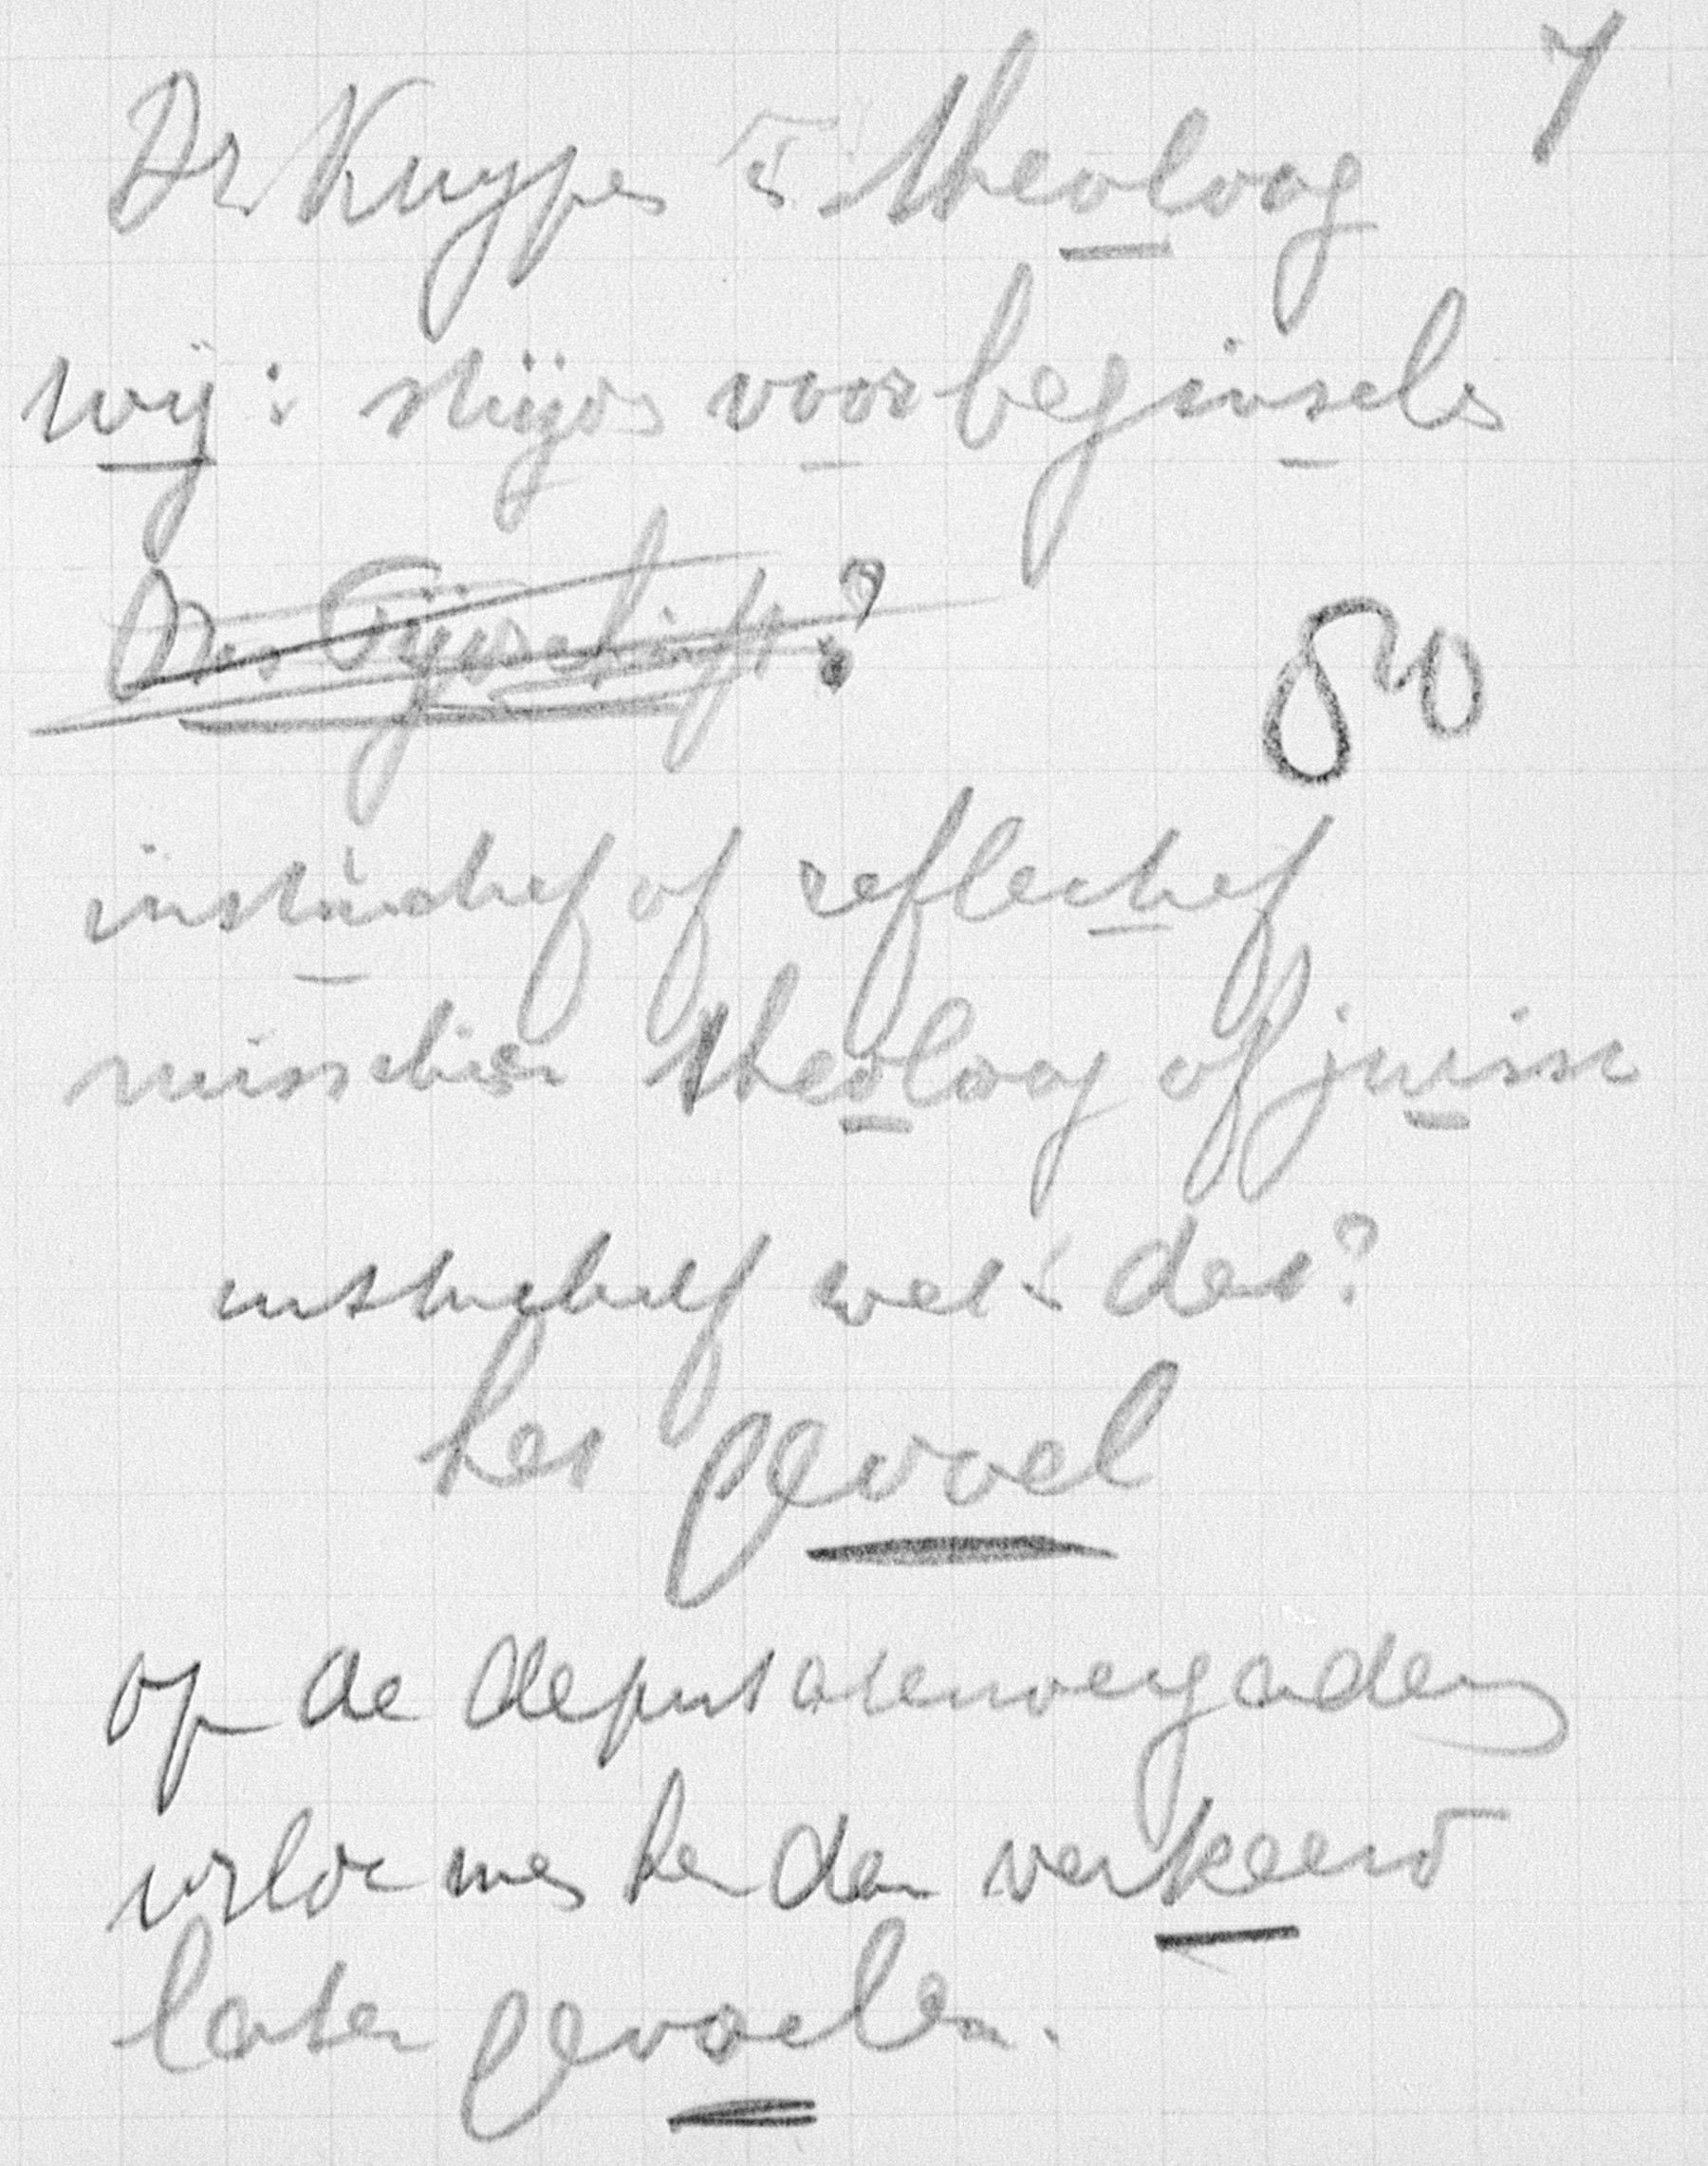 7
Dr Kuyper is theoloog
wij: strijd voor beginsels
Ons Tijdschrift?
instinctief of reflectief
misschien theoloog of jurist
instinctief wat is dat?
het gevoel
op de deputatenvergadering
wilde men hen dan verkeerd
laten gevoelen.